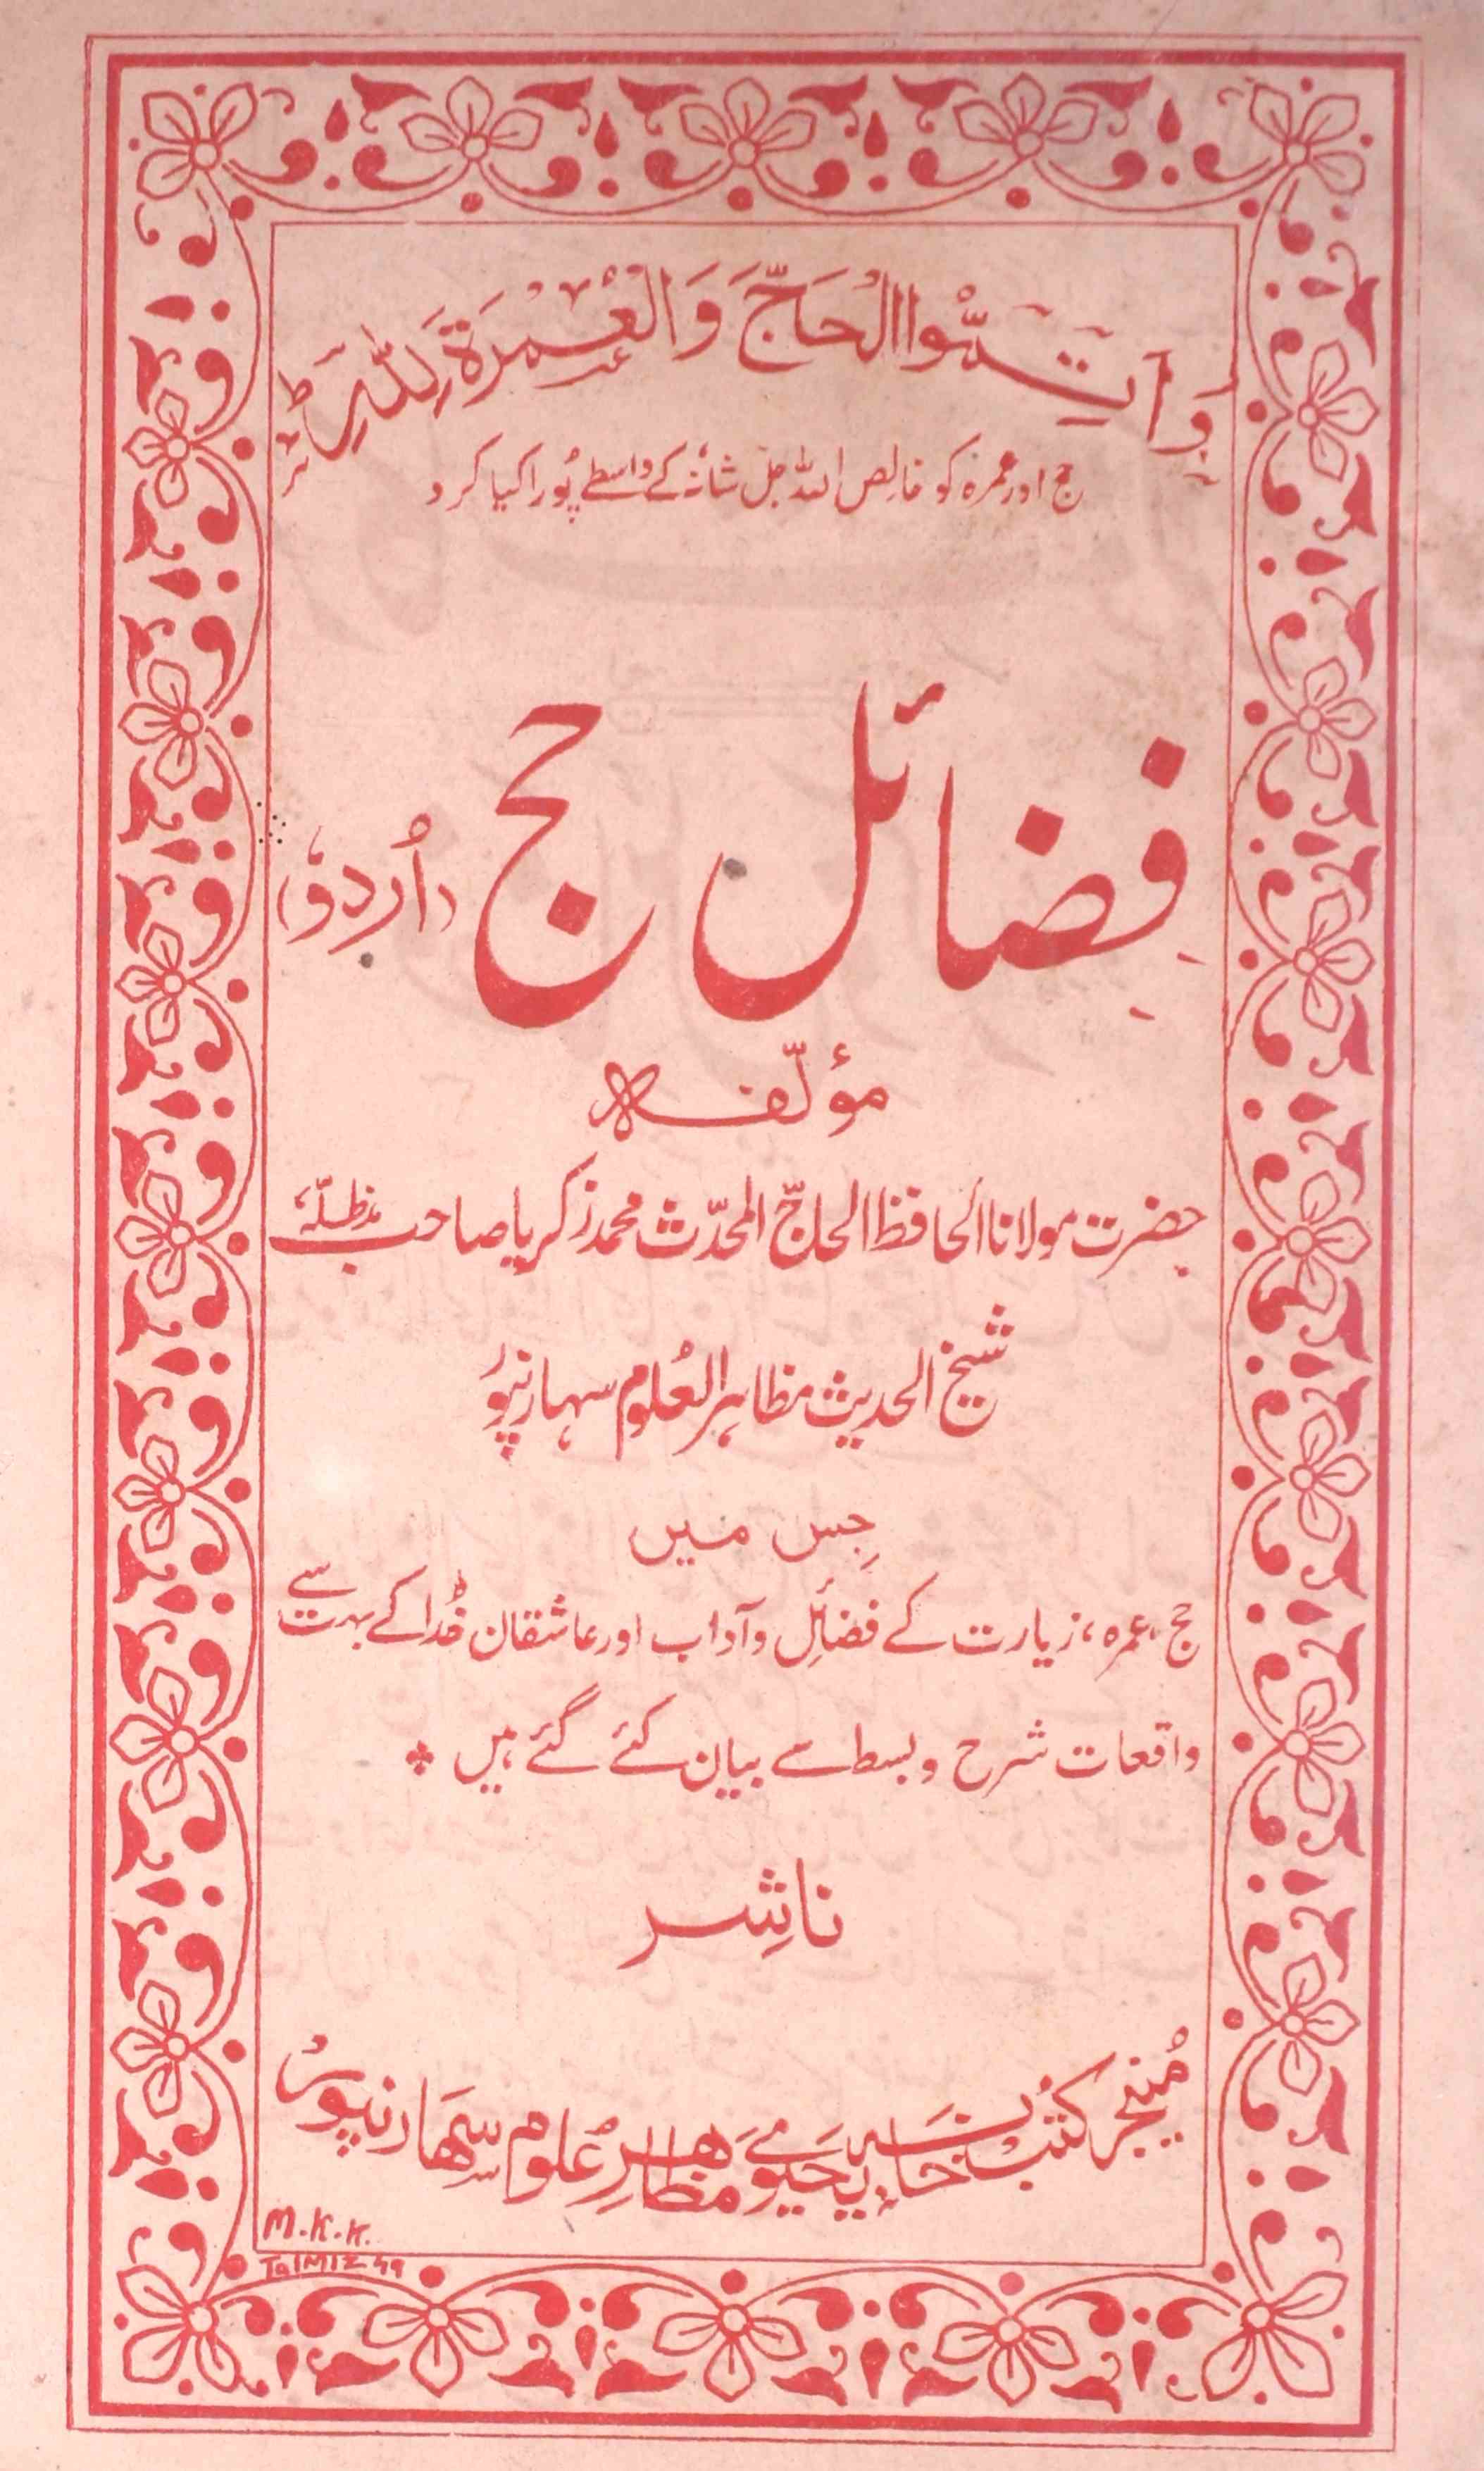 وَاَتِمُّوا الْحَجَّ وَالْعُمْرَةَ لِلّٰہِ ط
حج اور عمرہ کو خالص اللہ جل شانہٗ کے واسطے پُورا کیا کرو
فضائل حج (اُردو)
مؤلّفہ
حضرت مولانا الحافظ الحاجّ المحدّث محمد زکریا صاحب مدظلہٗ
شیخ الحدیث مظاہر العُلوم سہارنپور
جِس میں
حج، عمرہ، زیارت کے فضائِل و آداب اور عاشقان خُدا کے بہت سے
واقعات شرح و بسط سے بیان کئے گئے ہیں
ناشِر
مُنیجر کُتب خانہ یحیوی مظاہرِ عُلوم سہارنپور
M.K.K.
TalMIZ 49